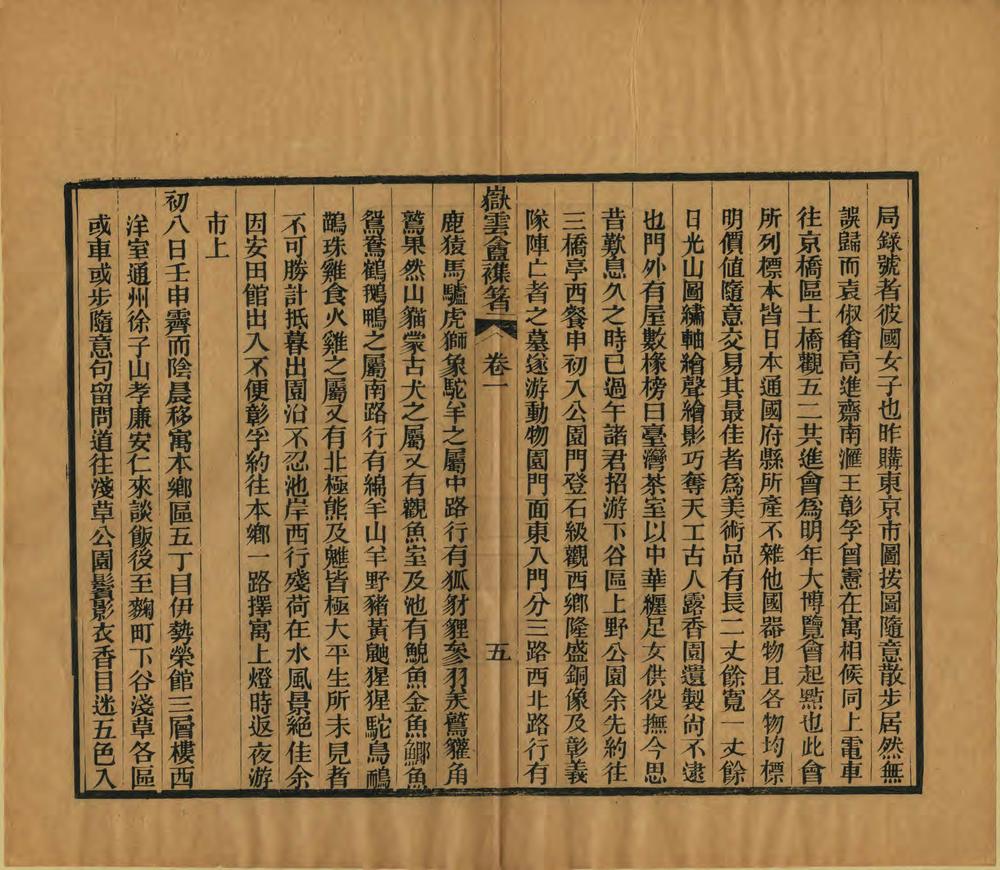 局錄號者彼國女子也昨購東京市圖按圖隨意散步居然無
誤歸而袁俶畬高進齋南滙王彰孚曾憲在寓相候同上電車
往京橋區土橋觀五二共進會爲明年大博覽會起點也此會
所列標本皆日本通國府縣所產不雜他國器物且各物均標
明價值隨意交易其最佳者爲美術品有長二丈餘寬一丈餘
日光山圖繡軸繪聲繪影巧奪天工古人露香園遺製尙不逮
也門外有屋數椽榜曰臺灣茶室以中華纏足女供役撫今思
昔歎息久之時已過午諸君招游下谷區上野公園余先約往
三橋亭西餐申初入公園門登石級觀西鄉隆盛銅像及彰義
隊陣亡者之墓遂游動物園門面東入門分三路西北路行有
嶽雲盦襍箸 卷一 五
鹿猿馬驢虎獅象駝羊之屬中路行有狐豺貍麥羽美鷲貛角
鷲果然山貓蒙古犬之屬又有觀魚室及池有鯢魚金魚鯽魚
鴛鴦鶴鵝鴨之屬南路行有綿羊山羊野豬黃鼬猩猩駝鳥鴯
鶓珠雞食火雞之屬又有北極熊及魋皆極大平生所未見者
不可勝計抵暮出園沿不忍池岸西行殘荷在水風景絕佳余
因安田館出入不便彰孚約往本鄉一路擇寓上燈時返夜游
市上
初八日壬申霽而陰晨移寓本鄉區五丁目伊勢榮館三層樓西
洋室通州徐子山孝廉安仁來談飯後至麴町下谷淺草各區
或車或步隨意句留問道往淺草公園鬢影衣香目迷五色入